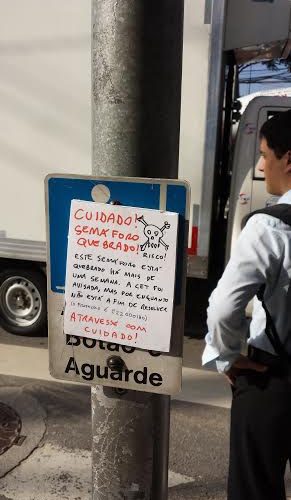 CUIDADO!
SEMÁFORO
QUEBRADO!
RISCO!
ESTE SEMÁFORO ESTÁ
QUEBRADO HÁ MAIS DE
UMA SEMANA. A CET FOI
AVISADA, MAS POR ENQUANTO
NÃO ESTÁ A FIM DE RESOLVER
ATRAVESSE COM
CUIDADO!
Botão e
Aguarde